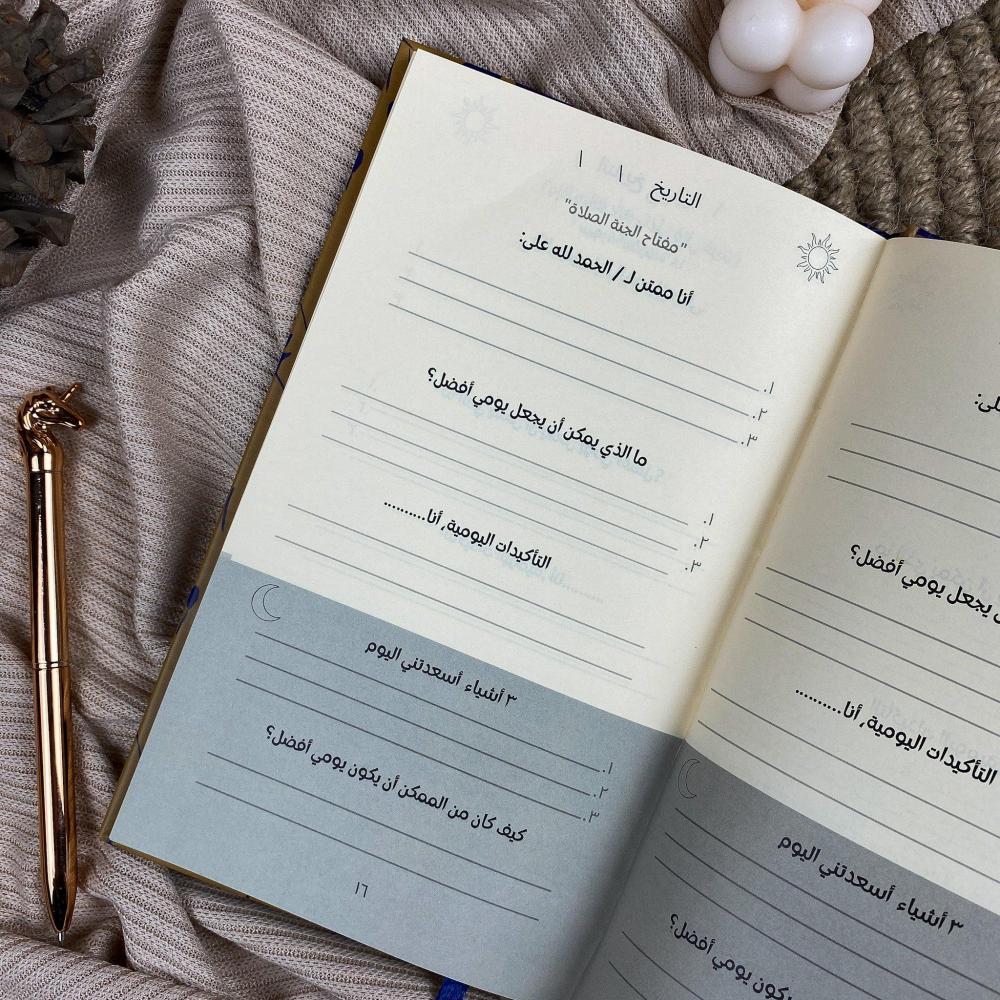 التاريخ \ \
"مفتاح الجنة الصلاة"
أنا ممتن لـ / الحمد لله على:
١.
٢.
٣.
ما الذي يمكن أن يجعل يومي أفضل؟
١.
٢.
٣.
التأكيدات اليومية, أنا..........
٣ أشياء أسعدتني اليوم
١.
٢.
٣.
كيف كان من الممكن أن يكون يومي أفضل؟
١٦
على:
يجعل يومي أفضل؟
التأكيدات اليومية, أنا..........
٣ أشياء أسعدتني اليوم
يكون يومي أفضل؟